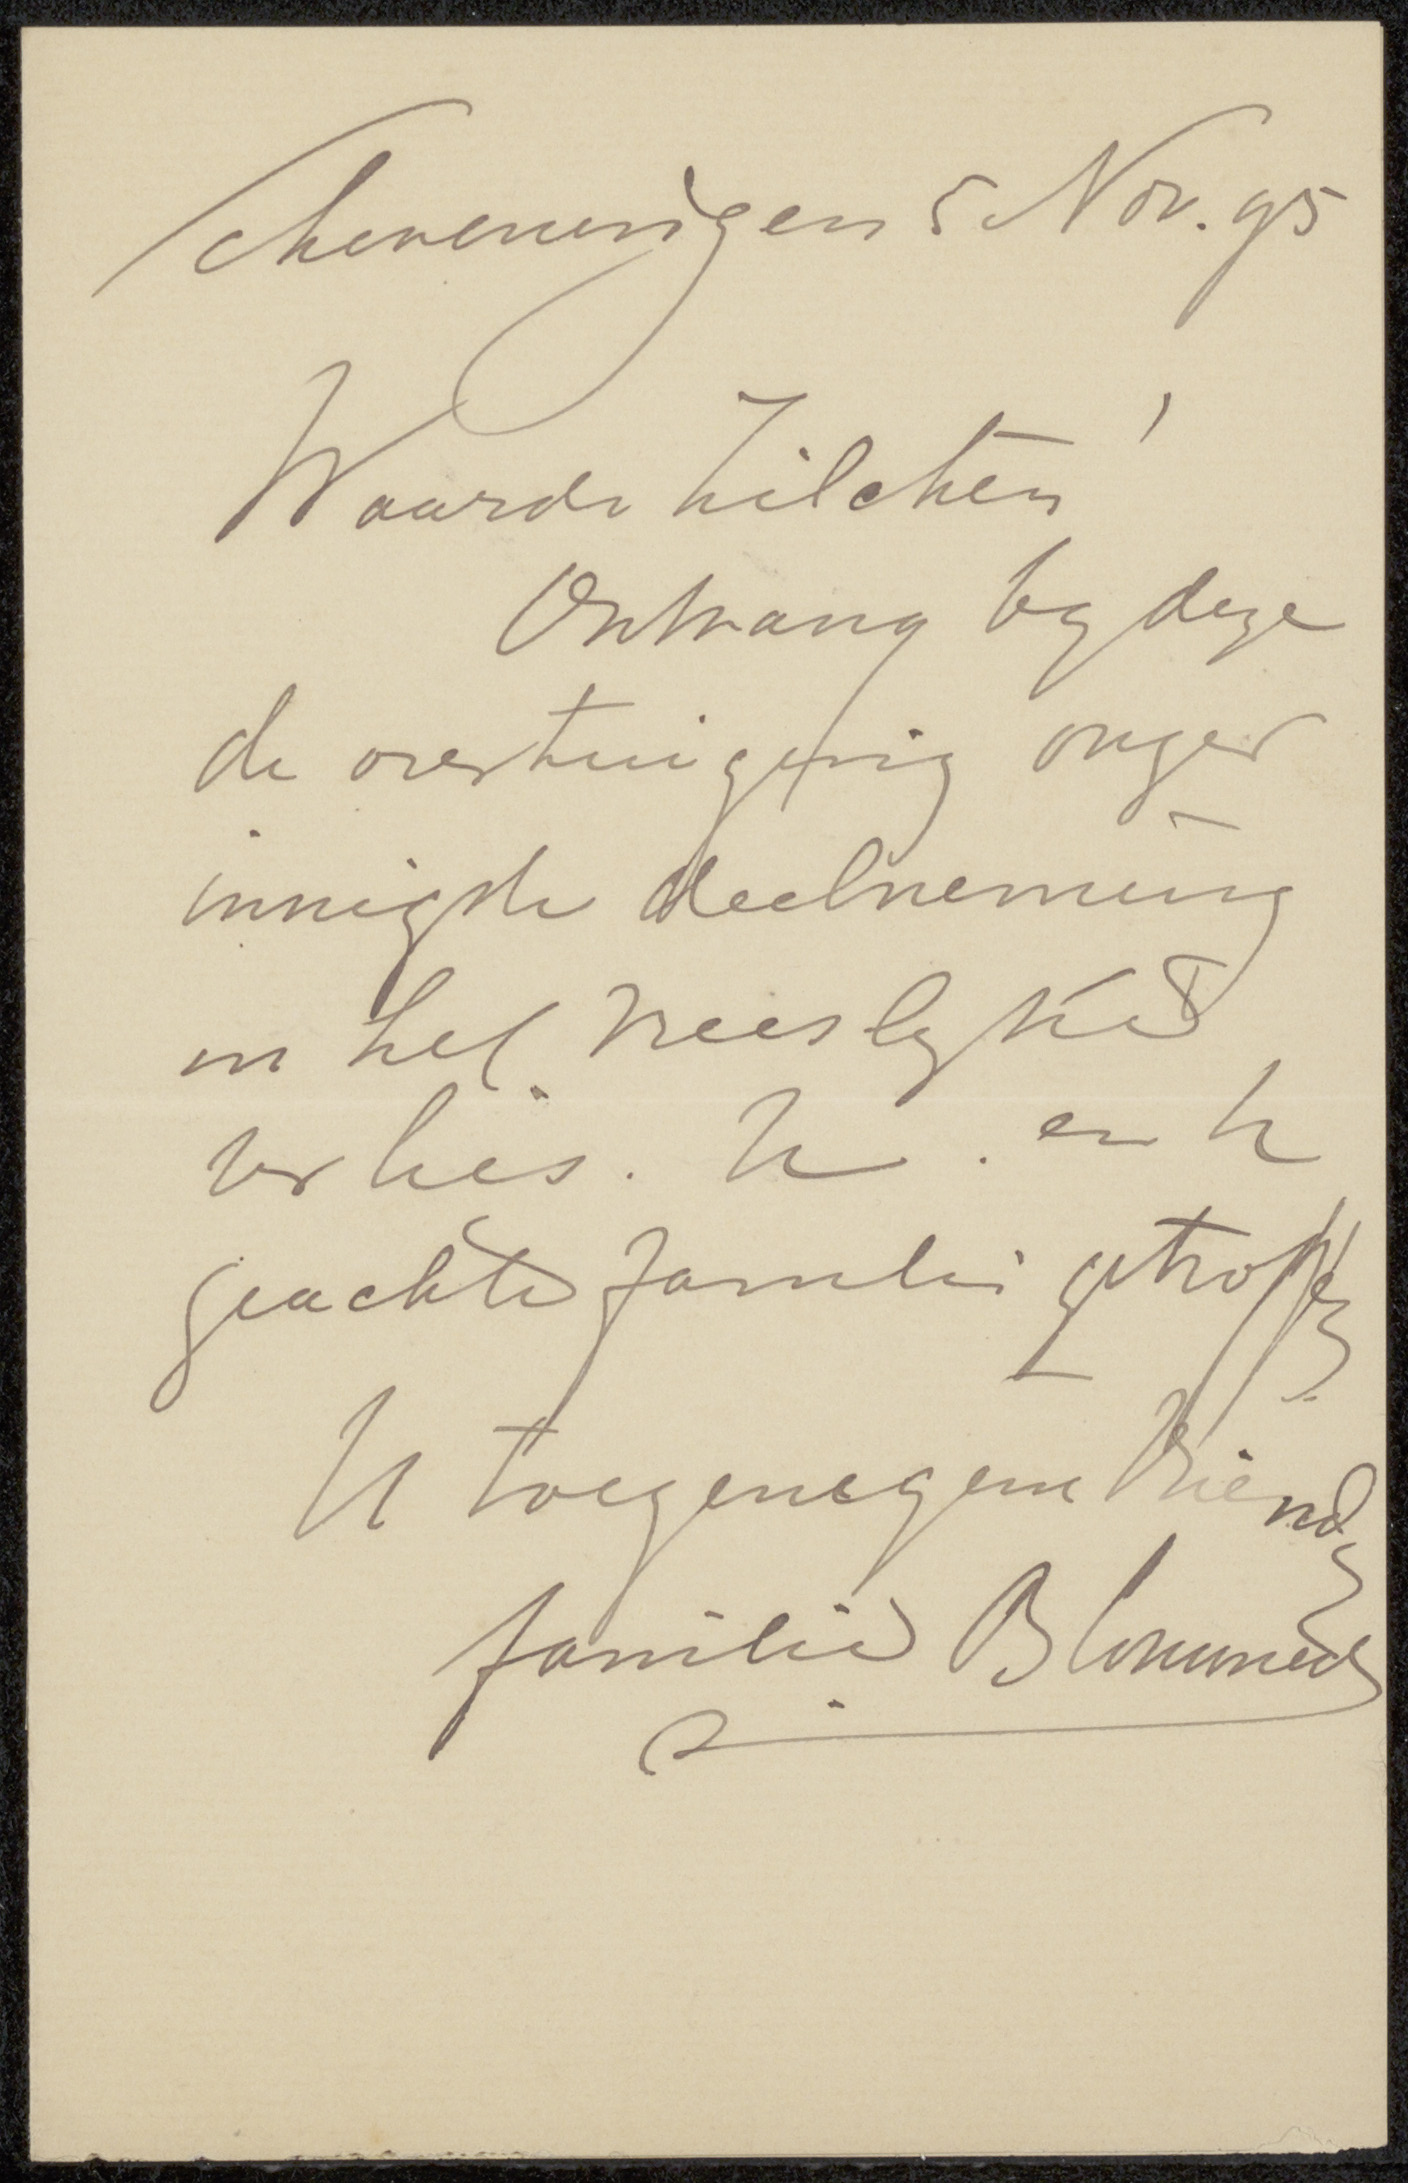 Scheveningen 5 Nov. 95
Waarde Zilcken!
Ontvang by deze
de overtuiging onzer
innigste deelneming
in het vreeslyke
verlies. U. en U
geachte familie getroffen.
U toegenegene Vriend,
familie Blommers